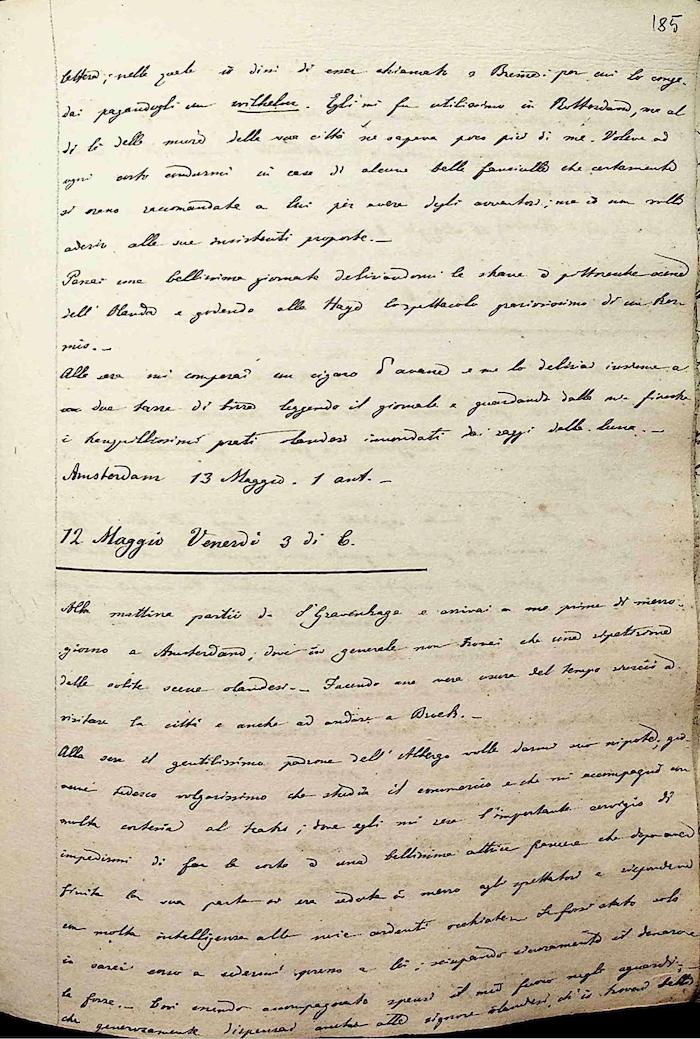 185
lettera; nella quale io dissi di esser chiamato a Brema: per cui lo conge-
dai pagandogli un wilhelm. Egli mi fu utilissimo in Rotterdam, ma al
di là delle mura della sua città ne sapeva poco più di me. Voleva ad
ogni costo condurmi in casa di alcune belle fanciulle che certamente
si erano raccomandate a lui per avere degli avventori; ma io non volli
aderir alle sue insistenti proposte. _
Passai una bellissima giornata deliziandomi le strane e pittoresche scene
dell' Olanda e godendo alla Haya lo spettacolo graziosissimo di un
_
Alla sera mi comperai un cigaro d'avana e me lo deliziai insieme a
due tazze di birra leggendo il giornale e guardando dalla mia finestra
i tranquillissimi prati olandesi inondati dai raggi della luna. _
Amsterdam 13 Maggio. 1 ant. _
12 Maggio Venerdì 3 di C.
Alla mattina partii da S'Gravenhaga e arrivai a ora prima di mezzo-
giorno a Amsterdam; dove in generale non trovai che una ripetizione
delle solite scene olandesi. _ Facendo una vera usura del tempo riuscii a
visitare la città e anche ad andare a Broek. _
Alla sera il gentilissimo padrone dell' Albergo volle darmi suo nipote, gio-
vane tedesco volgarissimo che studia il commercio e che mi accompagnò con
molta cortesia al teatro; dove egli mi rese l'importante servigio di
impedirmi di far la corte a una bellissima attrice francese che dopo aver
finita la sua parte si era seduta in mezzo agli spettatori e rispondeva
con molta intelligenza alle mie ardenti occhiate. Se fossi stato solo
io sarei corso a sedermi presso a lei; sciupando sicuramente il denaro e
le forze. _ Così essendo accompagnato spensi il mio fuoco negli sguardi;
che generosamente dispensai anche alle signore olandesi, ch'io trovai belle